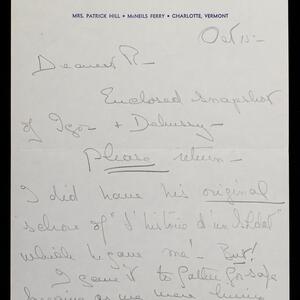 MRS. PATRICK HILL • McNEILS FERRY • CHARLOTTE, VERMONT
Oct 15 -
Dearest R -
Enclosed snapshot
of Igor + Debussy -
Please return -
I did have his original
score of "L'histoire d'un Soldat"
which he gave me. But!
I gave it to
because as we were living